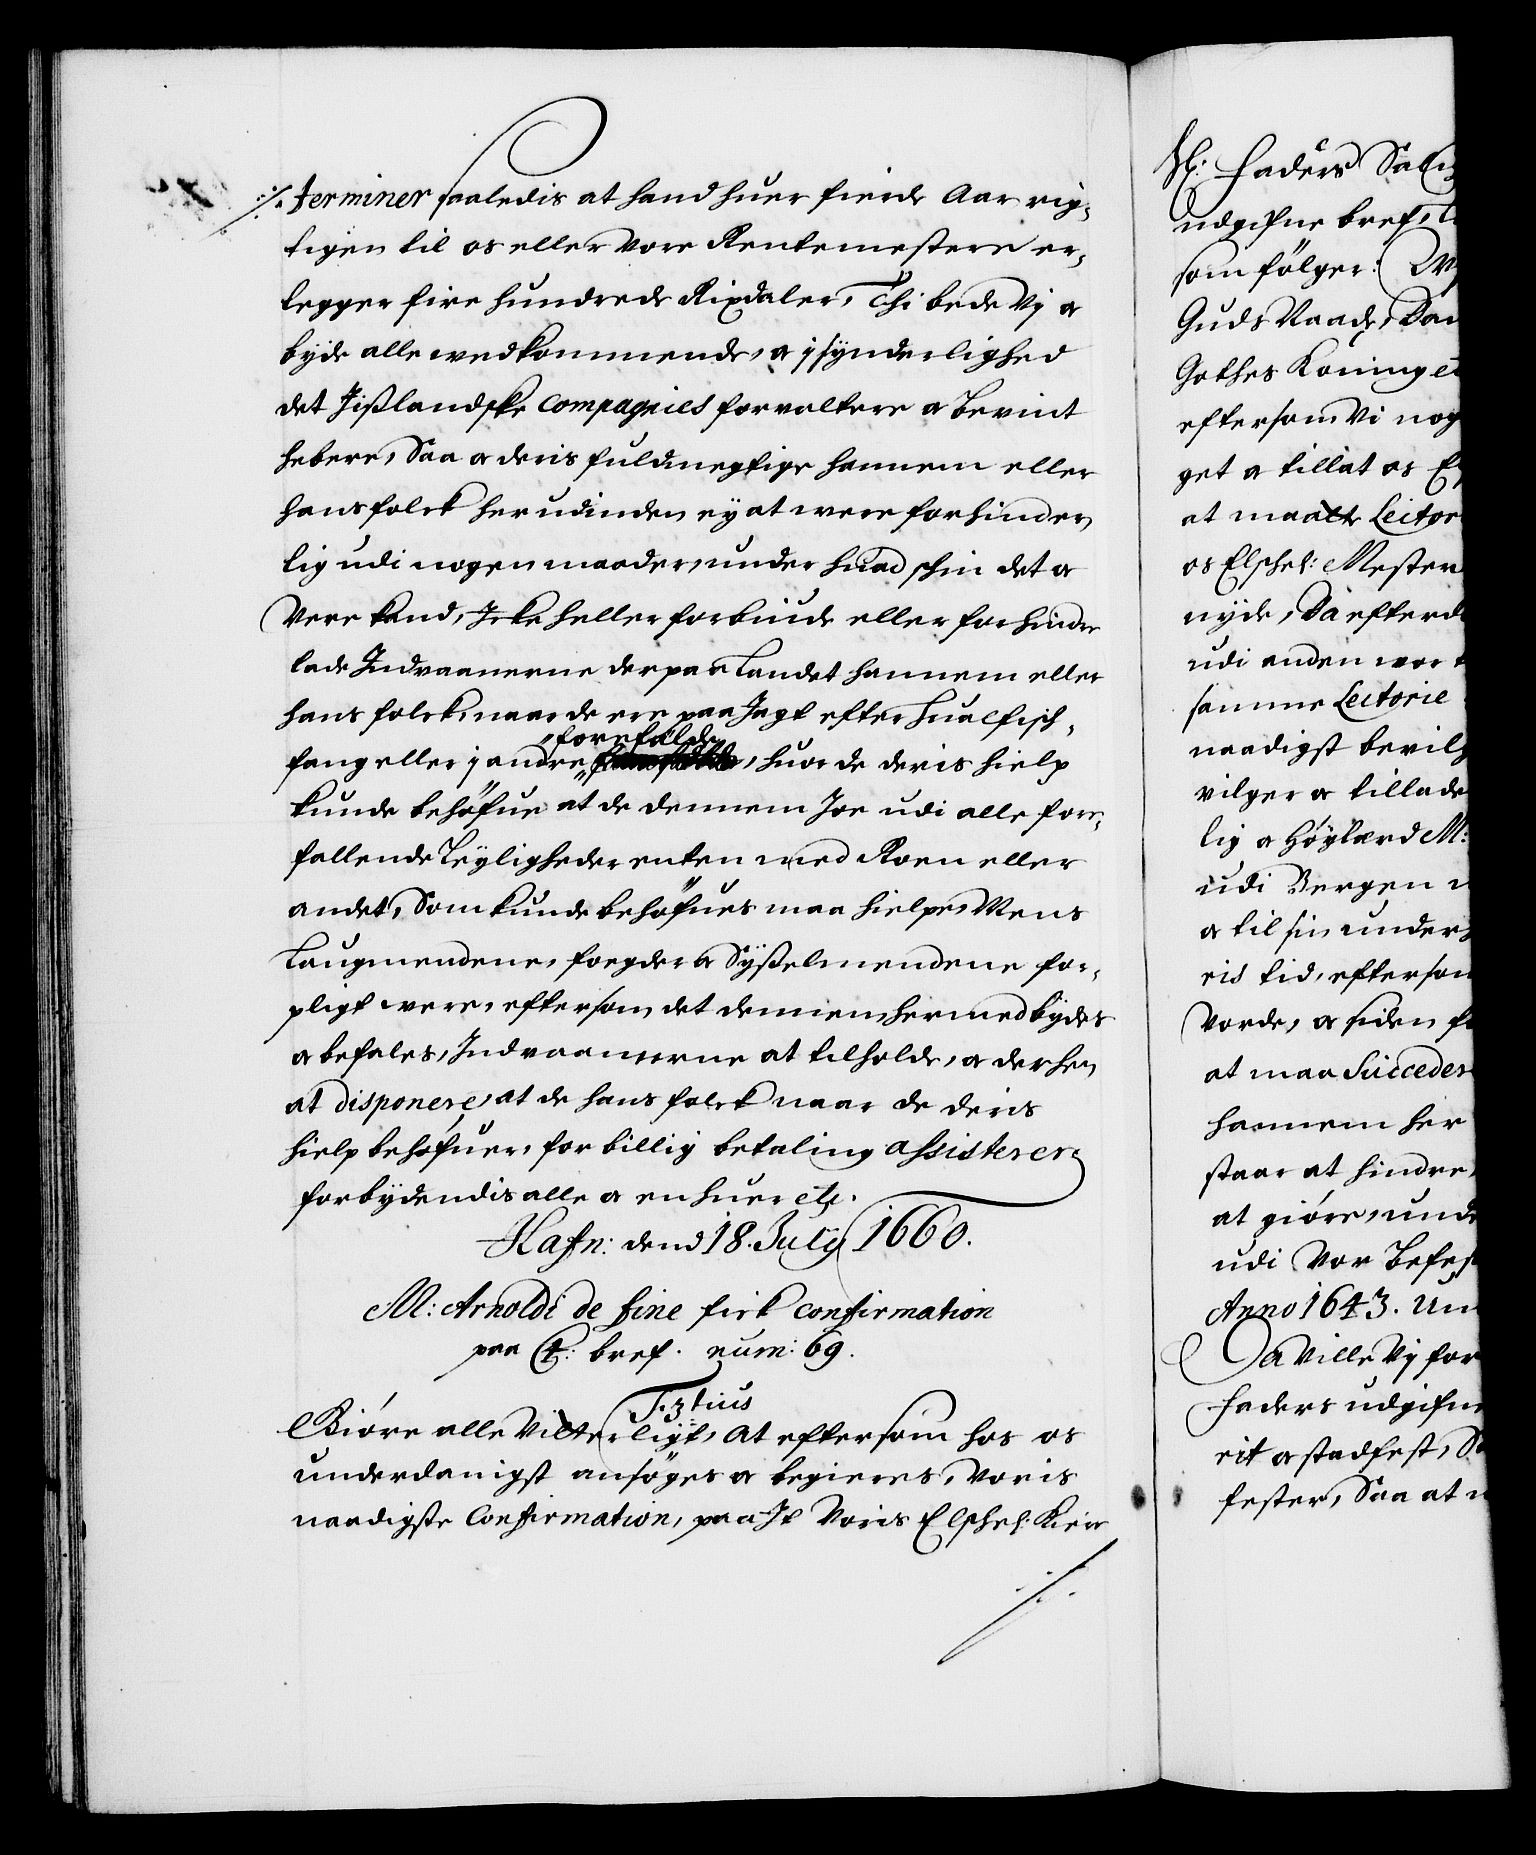 ./. terminer saaledis at hand huer fierde Aar rig,
tigen til os eller Vore Rentemestere er,
legger fire hundrede Rixdaler, Thi bede Vj oc
byde alle vedkommende, oc j synderlighed
det Jißlandske Compagnies forvaltere oc bevint
hebere, Saa oc deris fuldmegtige hannem eller
hans folck her udinden ey at were forhinder,
lig udi nogen maader, under huad schin det oc
Vere kand, Icke heller forbiude eller forhindre
lade Indvaanerne der paa Landet hannem eller
hans folck, naar de ere paa Jagt efter Hualfisch,
fang eller j andre forefalde, huor de deris hielp
kunde behøfue at de dennem Joe udi alle fore,
fallende Leyligheder enten med Roen eller
andet, Som kunde behøfues maa hielpe, Mens
Laugmendene, foegder oc Sysselmendene for,
pligt were, eftersom det dennem hermed bydes
oc befales, Indvaanerne at tilholde, oc derhen
at disponere, at de hans folck naar de deris
hielp behøfuer, for billig betaling assisterer
forbydendis alle oc en huer etc.
Hafn: dend 18. July 1660.
M: Arnoldi de fine fick confirmation
paa bref. num: 69.
F. 3tius
Giøre alle Vitterligt, At eftersom hos os
underdanigst ansøges oc begieres, Voris
naadigste Confirmation, paa It Voris Elschel: Kier
./.
H: Faders Sal
udgifne bref,
som følger:
Guds Naade, Dan
Gothes Koning
eftersom Vi nog
get oc tillat os
at maatte Lector
os Elschel: Mester
nyde, Da efterd
udi anden vor
samme Lectorie
naadigst bevilg
vilger oc tillade
lig oc Høylærd M:
udi Bergen
oc til sin under
ris tid, eftersom
Vorde, oc siden
at maa Succeder
hannem her
staar at hindre,
at giøre, unde
udi Vor befes
Anno 1643. Un
Da Ville Vj for
Faders udgifne
rit oc stadfest, Sa
fester, Saa at